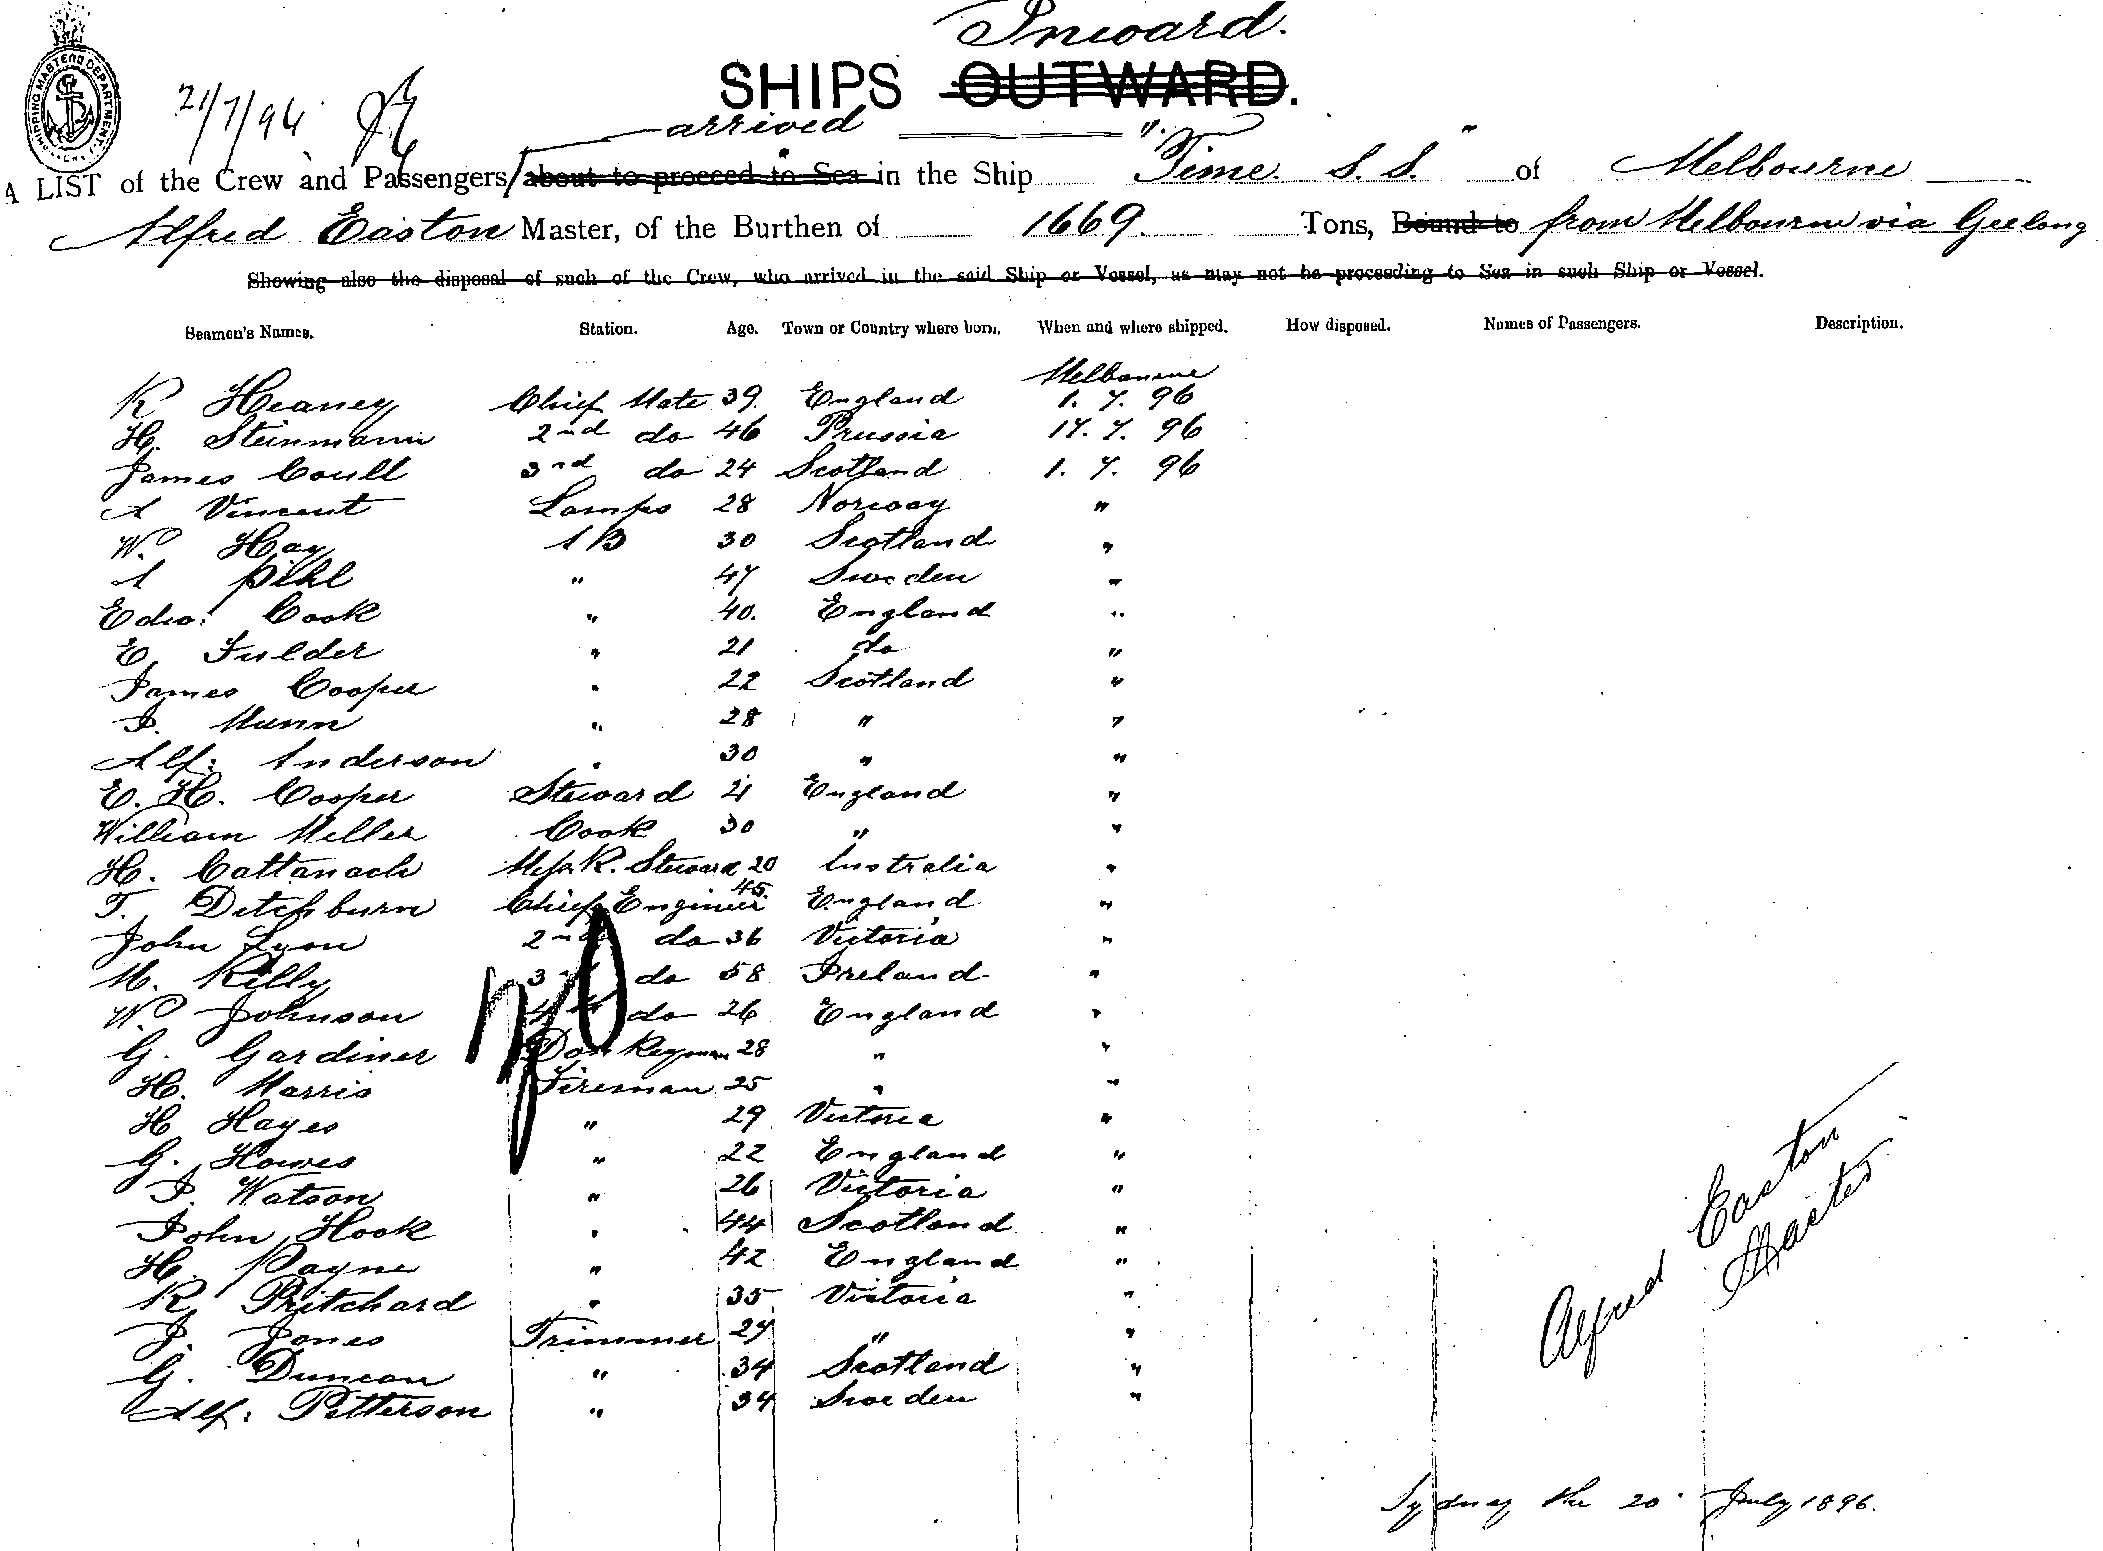 Inward.
SHIPS OUTWARD.
SHIPPING MASTERS DEPARTMENT
21/7/96
arrived
A LIST of the Crew and Passengers about to proceed to Sea in the Ship "Time. S. S." of Melbourne
Alfred Easton Master, of the Burthen of 1669. Tons, Bound to from Melbourne via Geelong
Showing also the disposal of such of the Crew, who arrived in the said Ship or Vessel, as may not be proceeding to Sea in such Ship or Vessel.
Seamen's Names. Station. Age. Town or Country where born. When and where shipped. How disposed. Names of Passengers. Description.
Melbourne
R Heaney Chief Mate 39. England 1. 7. 96
H. Steinmann 2nd do 46 Prussia 17. 7. 96
James Coull 3rd do 24 Scotland 1. 7. 96
A Vincent Lamps 28 Norway "
W. Hay A B 30 Scotland "
A Pihl " 47 Sweden "
Edw: Cook " 40. England "
E. Fulder " 21 do "
James Cooper " 22 Scotland "
J. Munn " 28 " "
Alf: Anderson " 30 " "
E. H. Cooper Steward 21 England "
William Meller Cook 30 " "
H. Cattanach Mess R. Steward 20 Australia "
T. Ditchburn Chief Engineer 45. England "
John Lyon 2nd do 36 Victoria "
M. Kelly 3rd do 58 Ireland "
W. Johnson 4th do 26 England "
G. Gardiner Donkeyman 28 " "
H. Harris Fireman 25 " "
H Hayes " 29 Victoria "
G. Howes " 22 England "
J. Watson " 26 Victoria "
John Hook " 44 Scotland "
H. Payne " 42 England "
R. Pritchard " 35 Victoria "
J. Jones Trimmer 27 " "
G. Duncan " 34 Scotland "
Alf: Petterson " 34 Sweden "
Alfred Easton
Master
Sydney the 20 July 1896.